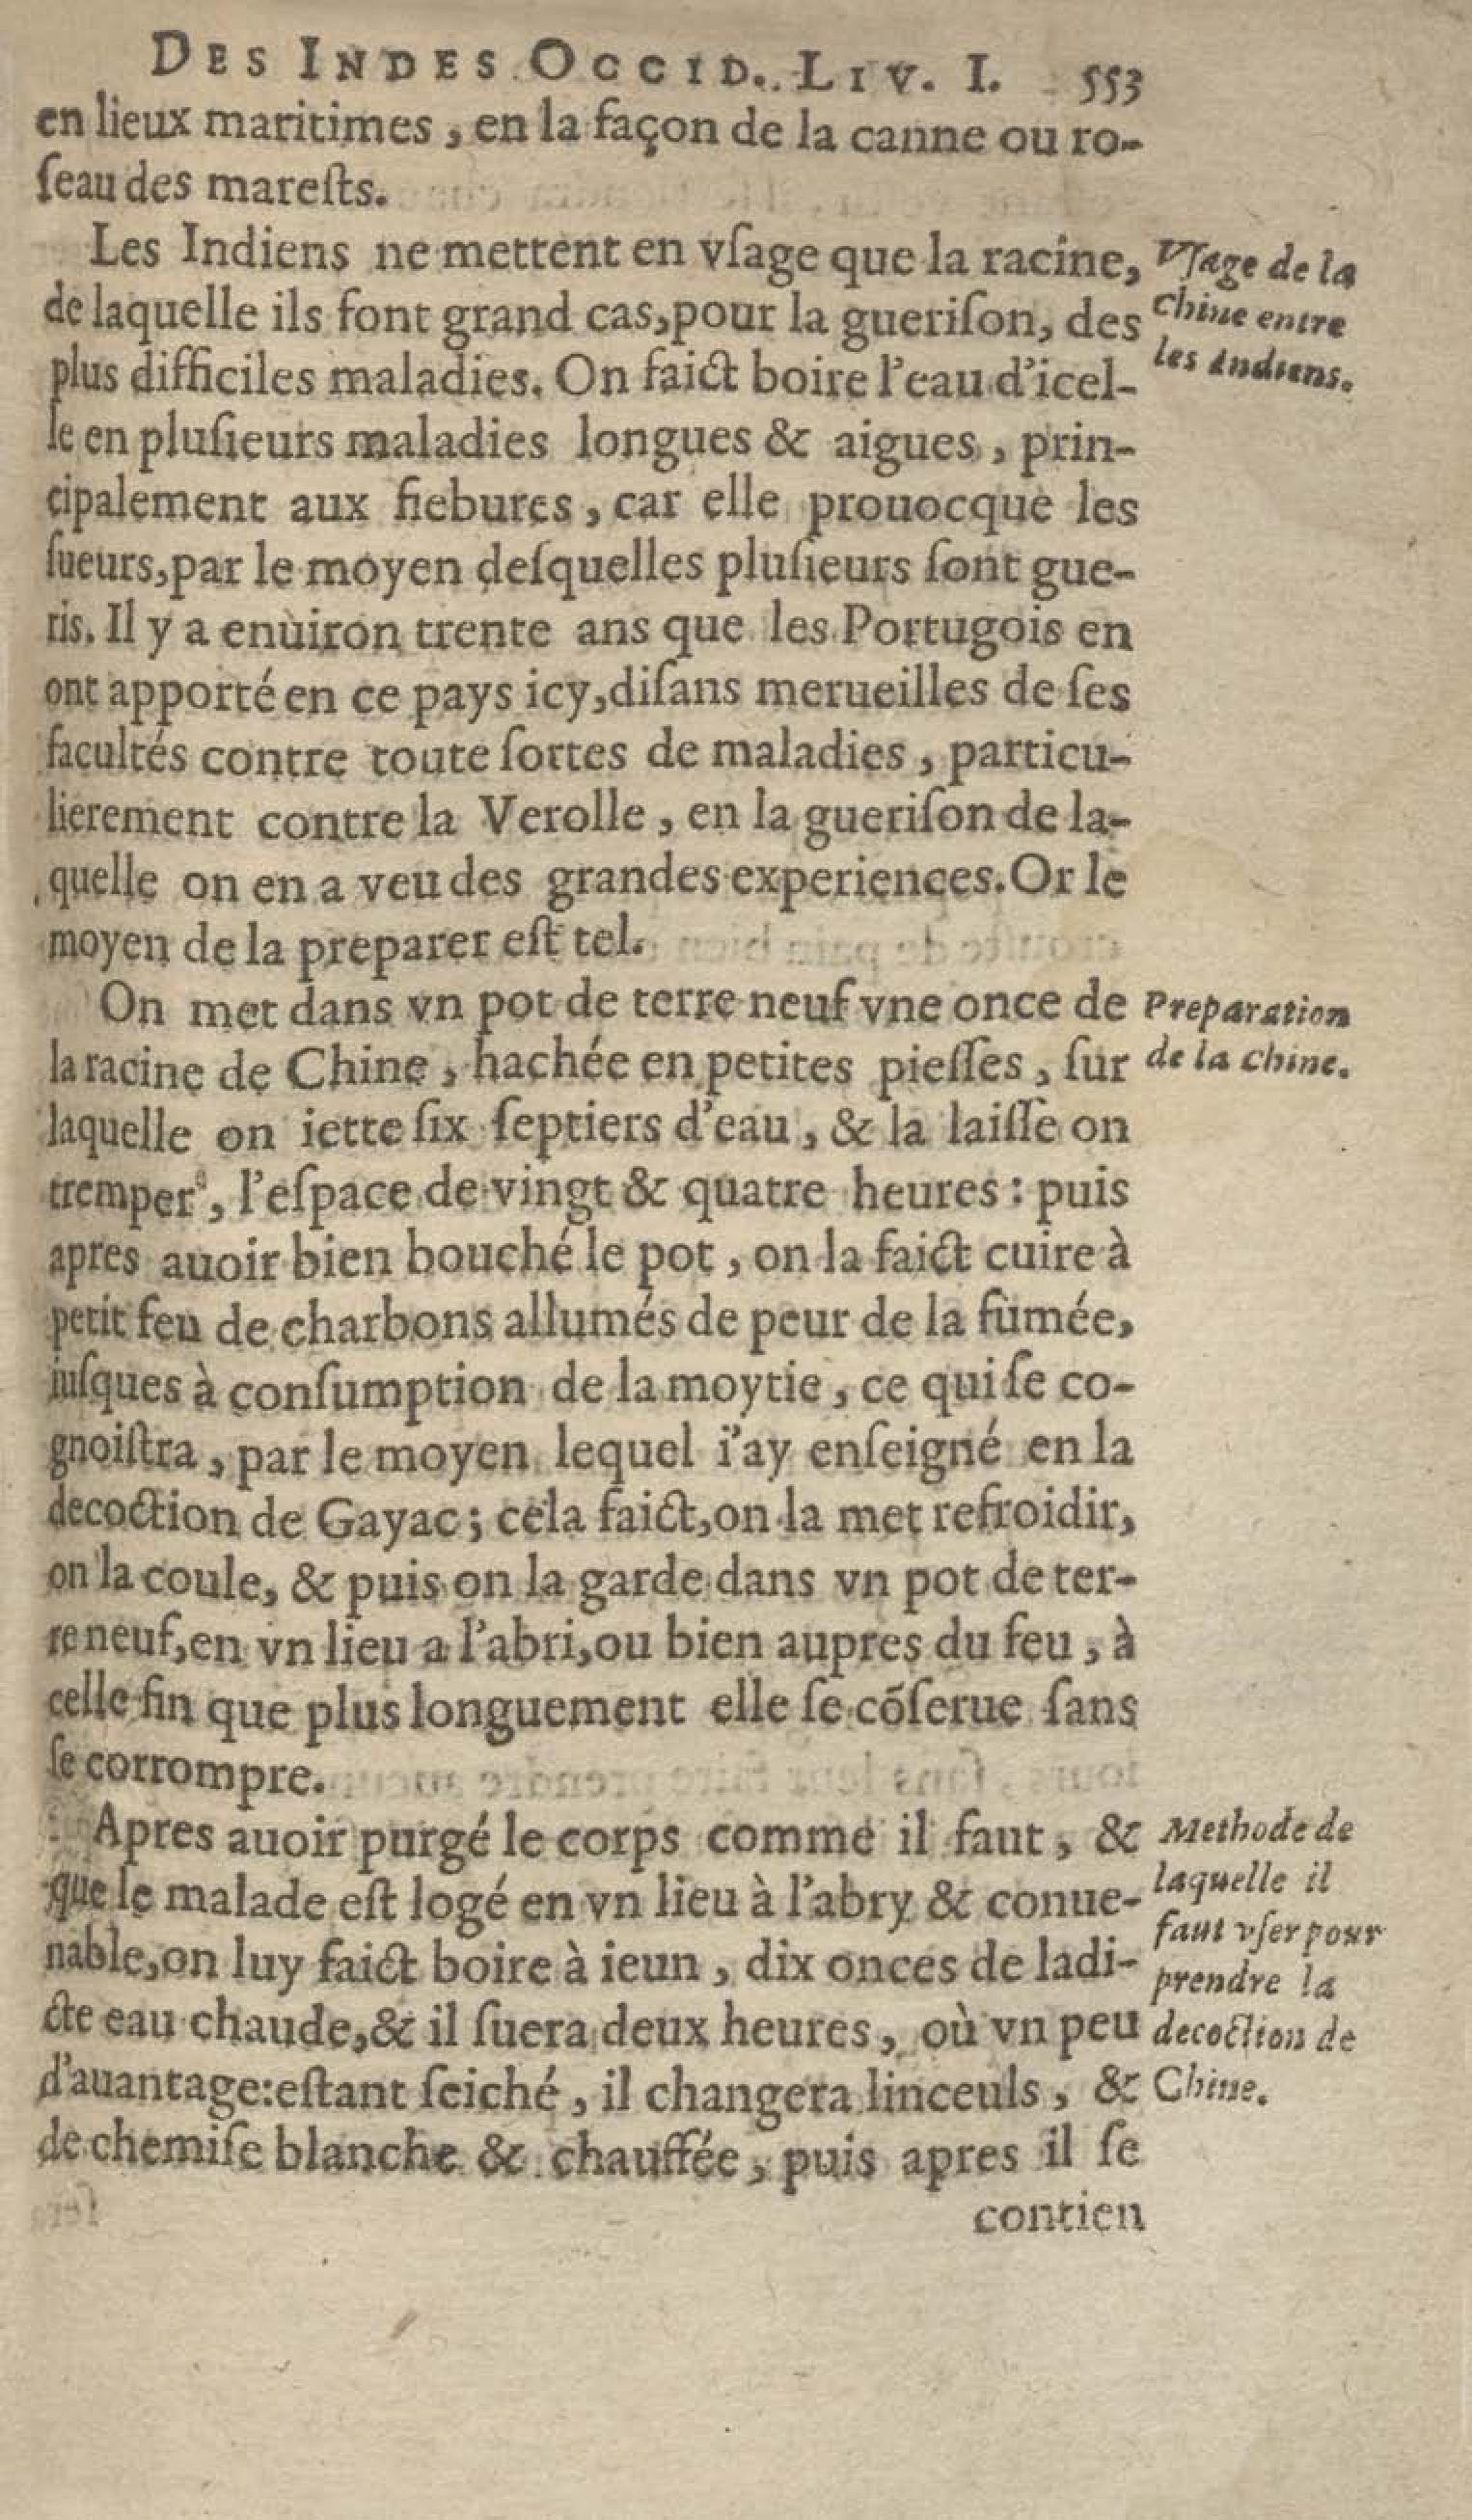 DES INDES OCCID. LIV. I. 553
en lieux maritimes, en la façon de la canne ou ro-
ſeau des mareſts.
Les Indiens ne mettent en vſage que la racine,
de laquelle ils font grand cas, pour la gueriſon, des
plus difficiles maladies. On faict boire l'eau d'icel-
le en pluſieurs maladies longues & aigues, prin-
cipalement aux fiebures, car elle prouocque les
ſueurs, par le moyen deſquelles pluſieurs ſont gue-
ris. Il y a enuiron trente ans que les Portugois en
ont apporté en ce pays icy, diſans merueilles de ſes
facultés contre toute ſortes de maladies, particu-
lierement contre la Verolle, en la gueriſon de la-
quelle on en a veu des grandes experiences. Or le
moyen de la preparer eſt tel.
On met dans vn pot de terre neuf vne once de
la racine de Chine, hachée en petites pieſſes, ſur
laquelle on iette ſix ſeptiers d'eau, & la laiſſe on
tremper, l'eſpace de vingt & quatre heures: puis
apres auoir bien bouché le pot, on la faict cuire à
petit feu de charbons allumés de peur de la fumée,
iuſques à conſumption de la moytie, ce qui ſe co-
gnoiſtra, par le moyen lequel i'ay enſeigné en la
decoction de Gayac; cela faict, on la met refroidir,
on la coule, & puis on la garde dans vn pot de ter-
re neuf, en vn lieu a l'abri, ou bien aupres du feu, à
celle fin que plus longuement elle ſe cõſerue ſans
ſe corrompre.
Apres auoir purgé le corps comme il faut, &
que le malade eſt logé en vn lieu à l'abry & conue-
nable, on luy faict boire à ieun, dix onces de ladi-
cte eau chaude, & il ſuera deux heures, où vn peu
d'auantage: eſtant ſeiché, il changera linceuls, &
de chemiſe blanche & chauffée, puis apres il ſe
contien
Vſage de la
Chine entre
les Indiens.
Preparation
de la Chine.
Methode de
laquelle il
faut vſer pour
prendre la
decoction de
Chine.